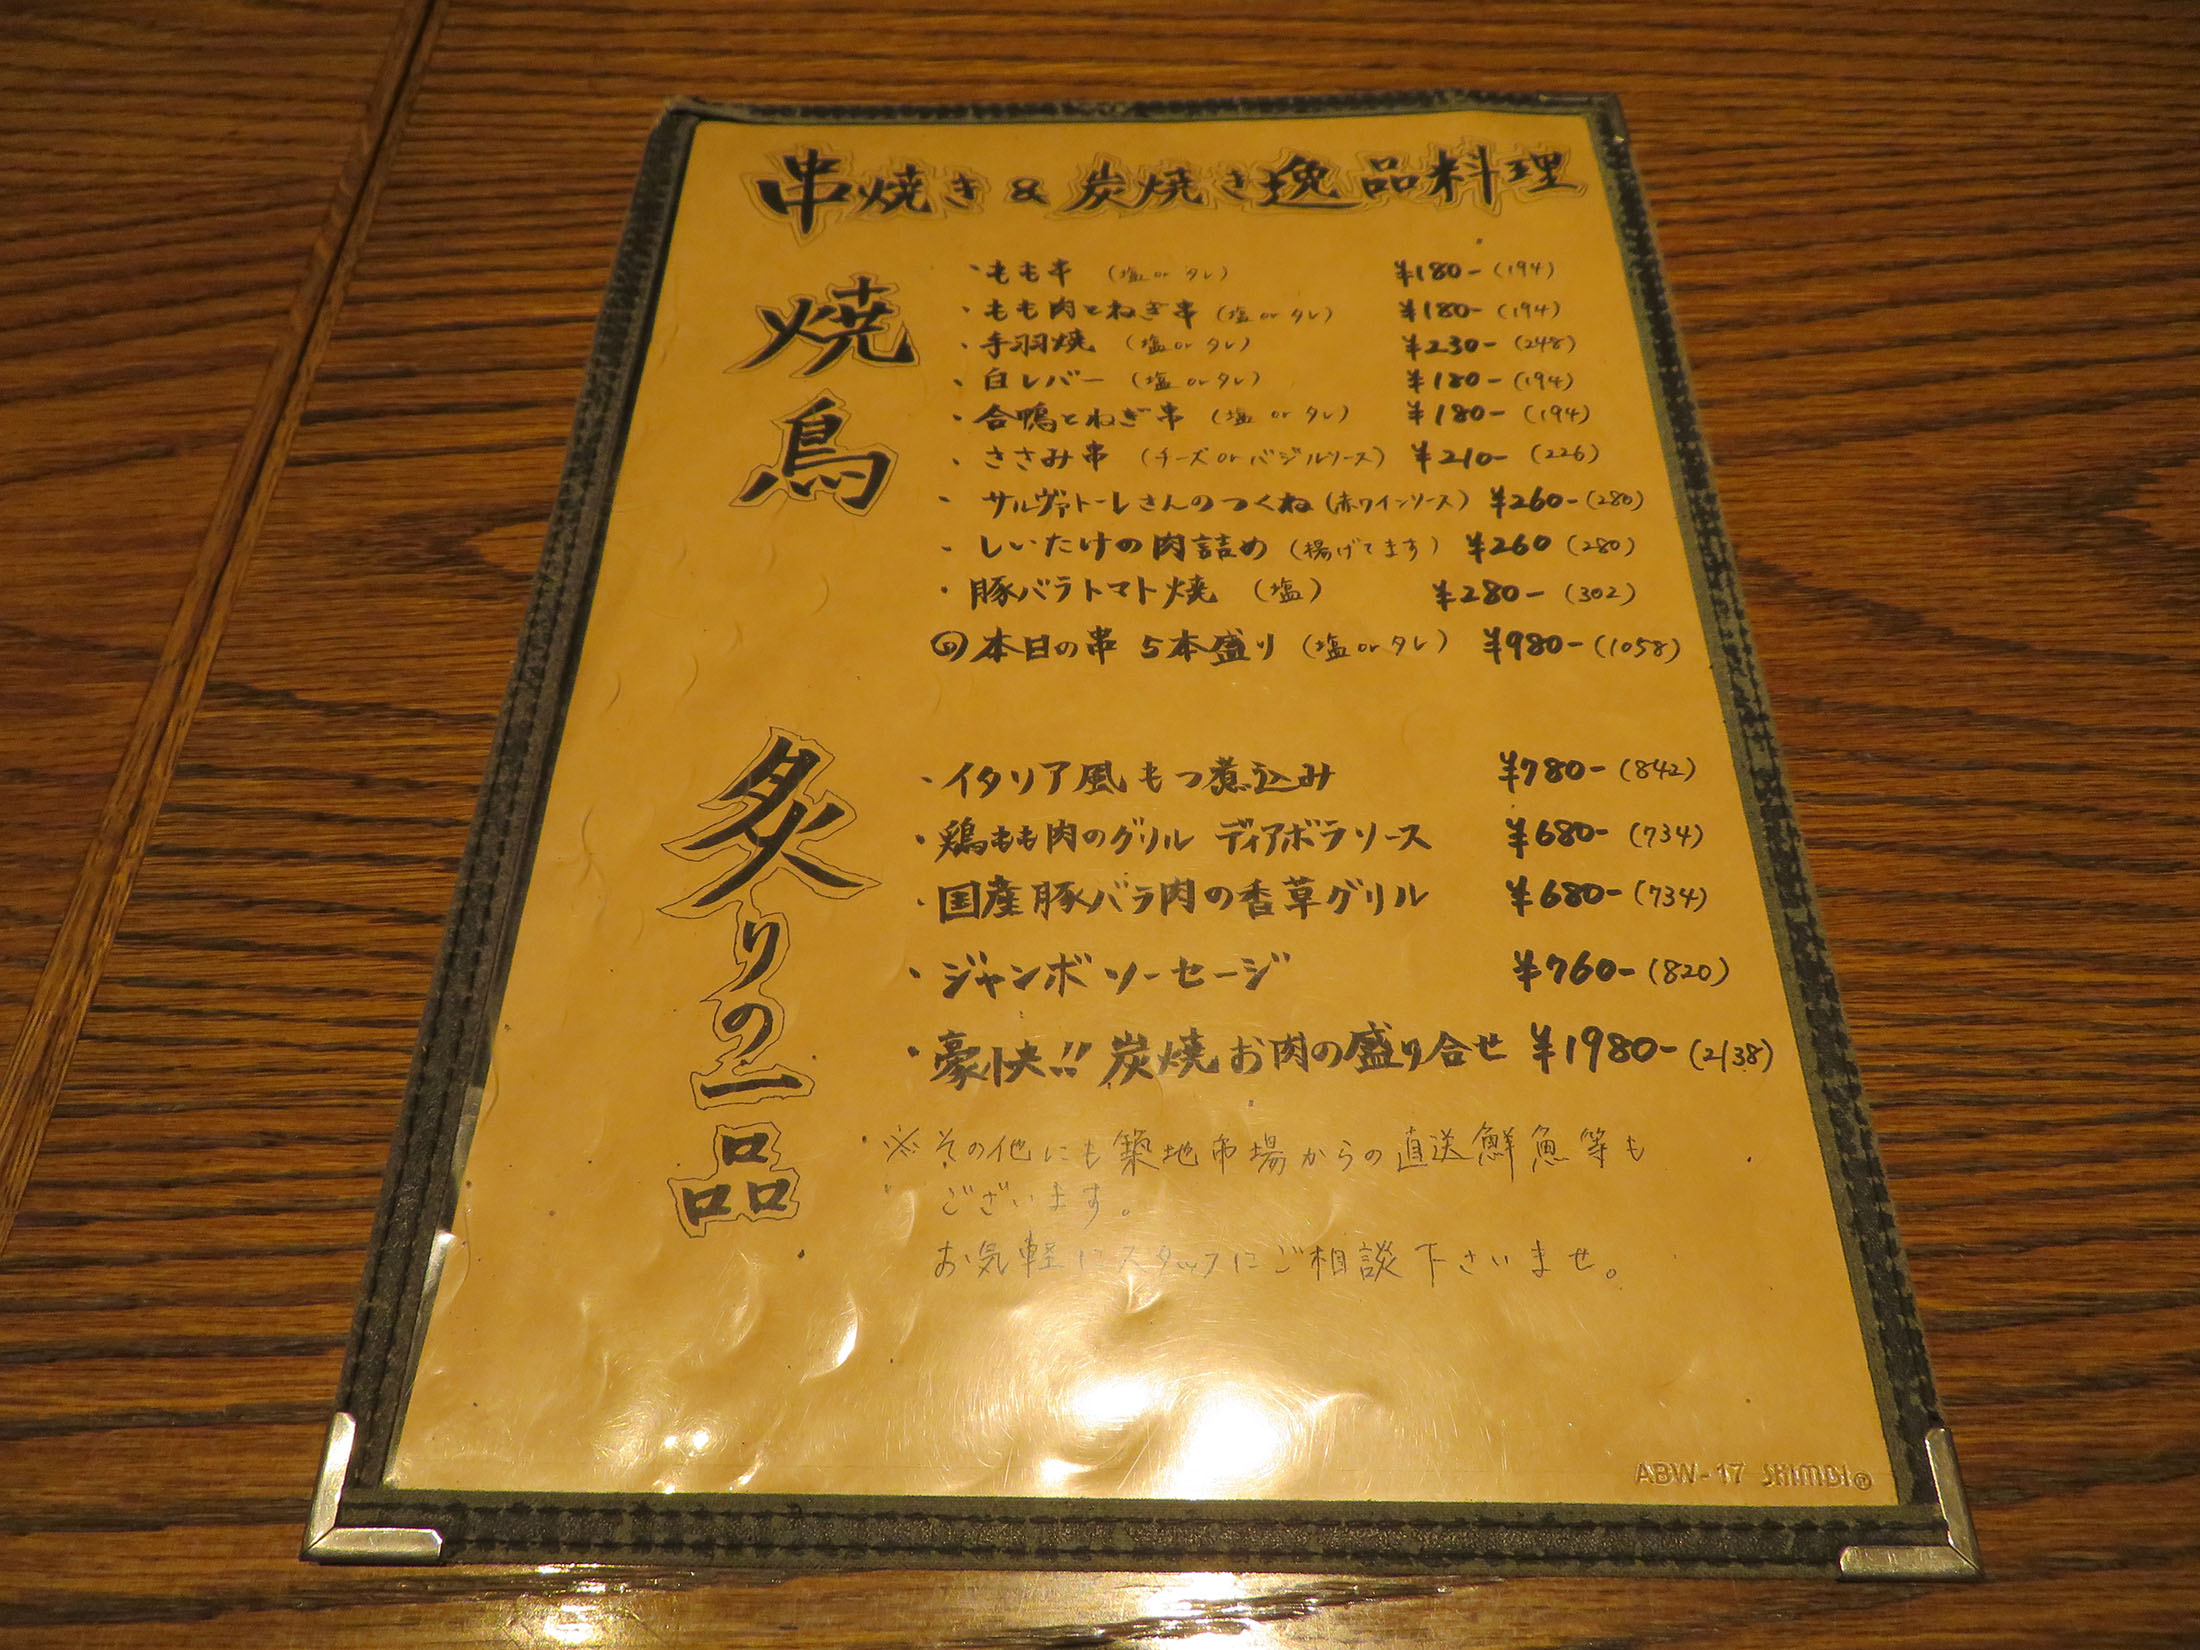 串焼き & 炭焼き逸品料理
焼鳥
・もも串 (塩orタレ) ¥180-(194)
・もも肉とねぎ串 (塩orタレ) ¥180-(194)
・手羽焼 (塩orタレ) ¥230-(248)
・白レバー (塩orタレ) ¥180-(194)
・合鴨とねぎ串 (塩orタレ) ¥180-(194)
・ささみ串 (チーズorバジルソース) ¥210-(226)
・サルヴァトーレさんのつくね(赤ワインソース) ¥260-(280)
・しいたけの肉詰め (揚げてます) ¥260 (280)
・豚バラトマト焼 (塩) ¥280-(302)
本日の串 5本盛り (塩orタレ) ¥980-(1058)
炙りの一品
・イタリア風もつ煮込み ¥780-(842)
・鶏もも肉のグリル ディアボラソース ¥680-(734)
・国産豚バラ肉の香草グリル ¥680-(734)
・ジャンボソーセージ ¥760-(820)
・豪快!! 炭焼お肉の盛り合せ ¥1980-(2138)
※その他にも築地市場からの直送鮮魚等も
ございます。
お気軽にスタッフにご相談下さいませ。
ABW-17 SHIMBI®